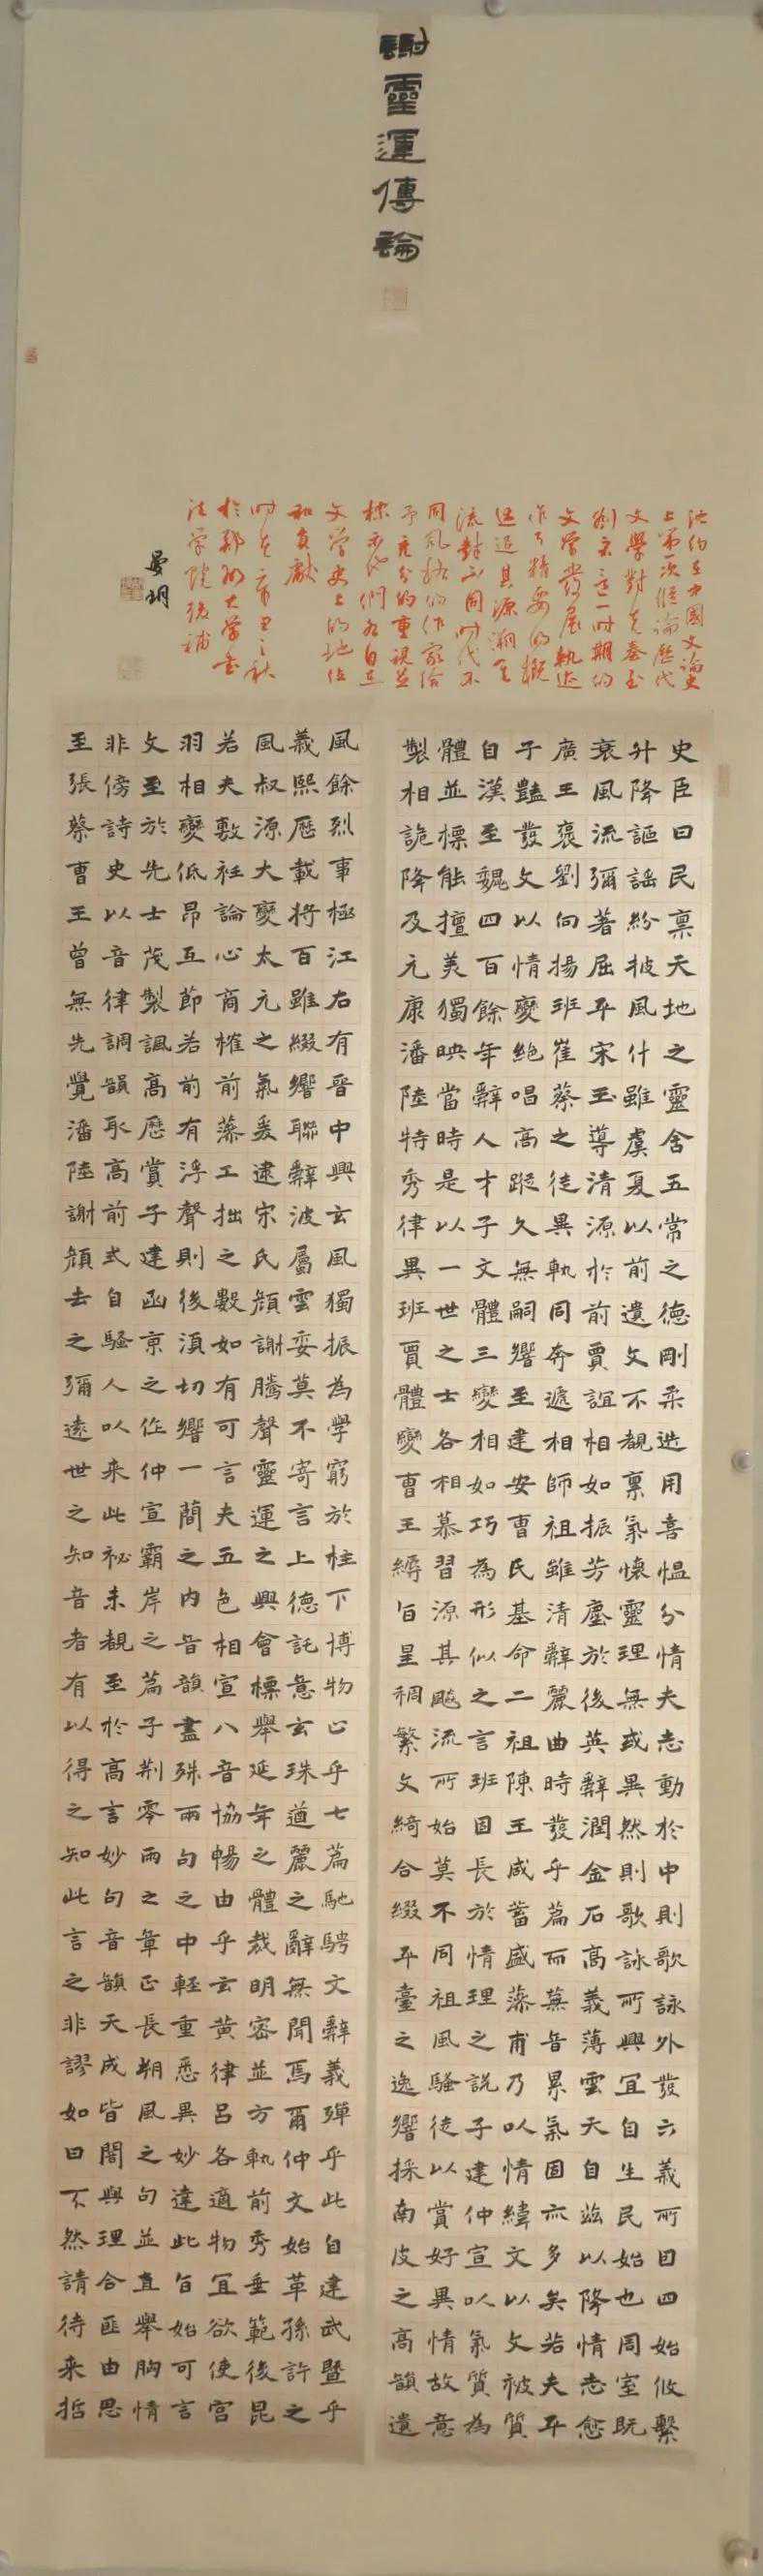 謝靈運傳論
沈約在中國文論史
上第一次總論歷代
文學對先秦至
劉宋這一時期的
文學發展軌迹
作了精要的概
述追其源溯其
流對不同時代不
同風格的作家給
予充分的重視並
標示他們各自在
文學史上的地位
和貢獻
時在辛丑之秋
於鄭州大學書
法學院後補
史臣曰民稟天地之靈含五常之德剛柔迭用喜慍分情夫志動於中則歌詠外發六義所因四始攸繫
升降謳謠紛披風什雖虞夏以前遺文不覩稟氣懷靈理無或異然則歌詠所興宜自生民始也周室既
衰風流彌著屈平宋玉導清源於前賈誼相如振芳塵於後英辭潤金石高義薄雲天自茲以降情志愈
廣王褒劉向揚班崔蔡之徒異軌同奔遞相師祖雖清辭麗曲時發乎篇而蕪音累氣固亦多矣若夫平
子豔發文以情變絕唱高蹤久無嗣響至建安曹氏基命二祖陳王咸蓄盛藻甫乃以情緯文以文被質
自漢至魏四百餘年辭人才子文體三變相如巧為形似之言班固長於情理之說子建仲宣以氣質為
體並標能擅美獨映當時是以一世之士各相慕習源其飈流所始莫不同祖風騷徒以賞好異情故意
製相詭降及元康潘陸特秀律異班賈體變曹王縟旨星稠繁文綺合綴平臺之逸響採南皮之高韻遺
風餘烈事極江右有晉中興玄風獨振為學窮於柱下博物止乎七篇馳騁文辭義殫乎此自建武暨乎
義熙歷載將百雖綴響聯辭波屬雲委莫不寄言上德託意玄珠遒麗之辭無聞焉爾仲文始革孫許之
風叔源大變太元之氣爰逮宋氏顏謝騰聲靈運之興會標舉延年之體裁明密並方軌前秀垂範後昆
若夫敷衽論心商榷前藻工拙之數如有可言夫五色相宣八音協暢由乎玄黃律呂各適物宜欲使宮
羽相變低昂互節若前有浮聲則後須切響一簡之內音韻盡殊兩句之中輕重悉異妙達此旨始可言
文至於先士茂製諷高歷賞子建函京之作仲宣霸岸之篇子荊零雨之章正長朔風之句並直舉胸情
非傍詩史以音律調韻取高前式自騷人以來此祕未覩至於高言妙句音韻天成皆闇與理合匪由思
至張蔡曹王曾無先覺潘陸謝顏去之彌遠世之知音者有以得之知此言之非謬如曰不然請待來哲